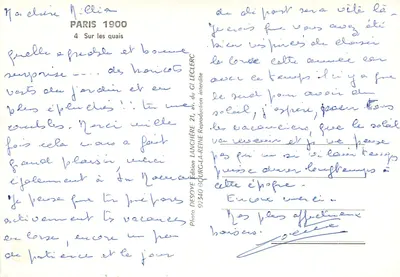 Ma chère Lilliane
PARIS 1900
4 Sur les quais
quelle agréable et bonne
surprise .... des haricots
verts du jardin et en
plus épluchés !! tu me
combles. Merci mille
fois cela m'a fait
grand plaisir merci
également à
Je pense que tu prépares
activement tes vacances
en Corse, encore un peu
de patience et le jour
Photo DESOYE Edition LIANCHÈRE 21, av. du Gl LECLERC
92340 BOURG-LA-REINE Reproduction interdite
du départ sera vite là
Je crois que vous avez été
bien inspirés de choisir
la Corse cette année car
avec ce temps il n'y a que
le sud pour avoir du
soleil, j'espère, pour tous
les vacanciers, que le soleil
va revenir et je ne pense
pas qu'un si vilain temps
puisse durer longtemps à
cette époque.
Encore merci.
Mes plus affectueux
baisers.